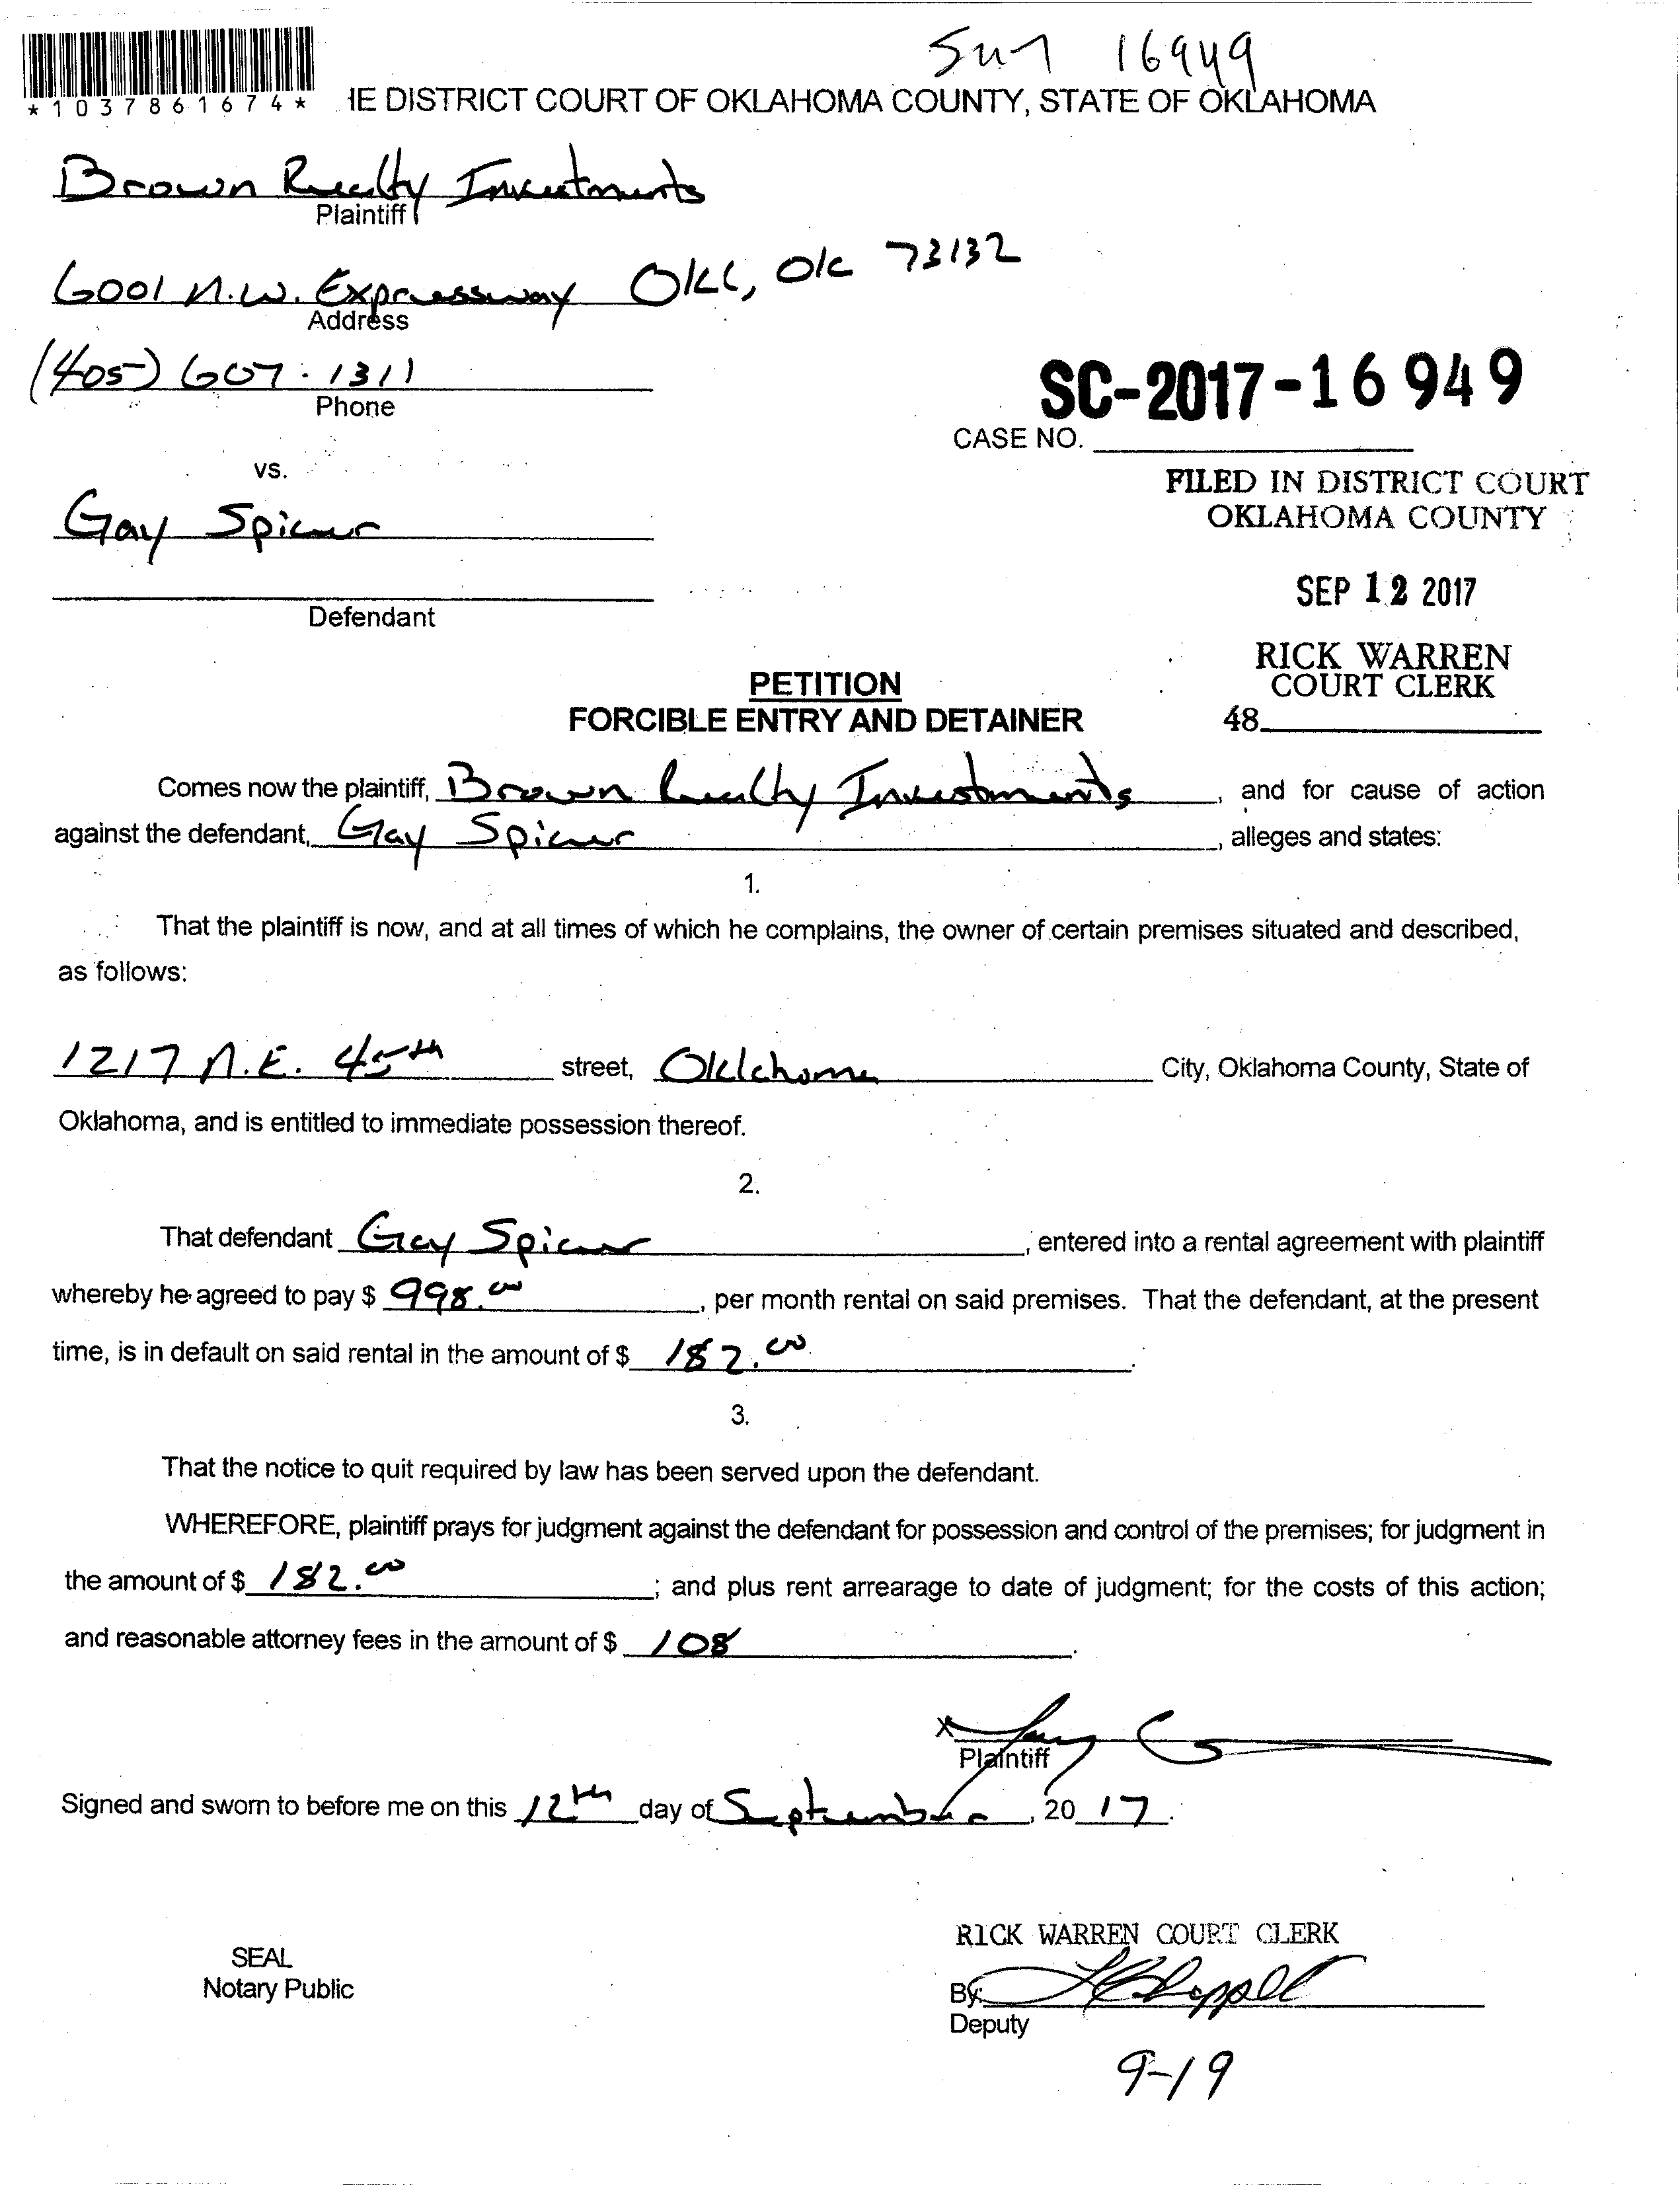 16949
*1037861674* IE DISTRICT COURT OF OKLAHOMA COUNTY, STATE OF OKLAHOMA
Brown Realty Investments
Plaintiff
6001 N.W. Expressway OKC, OK 73132
Address
(405) 607-1311
Phone
SC-2017-16949
CASE NO.
vs.
FILED IN DISTRICT COURT
OKLAHOMA COUNTY
Gay Spicer
SEP 12 2017
Defendant
RICK WARREN
COURT CLERK
48
PETITION
FORCIBLE ENTRY AND DETAINER
Comes now the plaintiff, Brown Realty Investments, and for cause of action
against the defendant, Gay Spicer, alleges and states:
1.
That the plaintiff is now, and at all times of which he complains, the owner of certain premises situated and described,
as follows:
1217 N.E. 45th street, Oklahoma City, Oklahoma County, State of
Oklahoma, and is entitled to immediate possession thereof.
2.
That defendant Gay Spicer, entered into a rental agreement with plaintiff
whereby he agreed to pay $ 998.00, per month rental on said premises. That the defendant, at the present
time, is in default on said rental in the amount of $ 182.00.
3.
That the notice to quit required by law has been served upon the defendant.
WHEREFORE, plaintiff prays for judgment against the defendant for possession and control of the premises; for judgment in
the amount of $ 182.00; and plus rent arrearage to date of judgment; for the costs of this action;
and reasonable attorney fees in the amount of $ 108.
X
Plaintiff
Signed and sworn to before me on this 12th day of September, 2017.
RICK WARREN COURT CLERK
SEAL
Notary Public
By:
Deputy
9-19